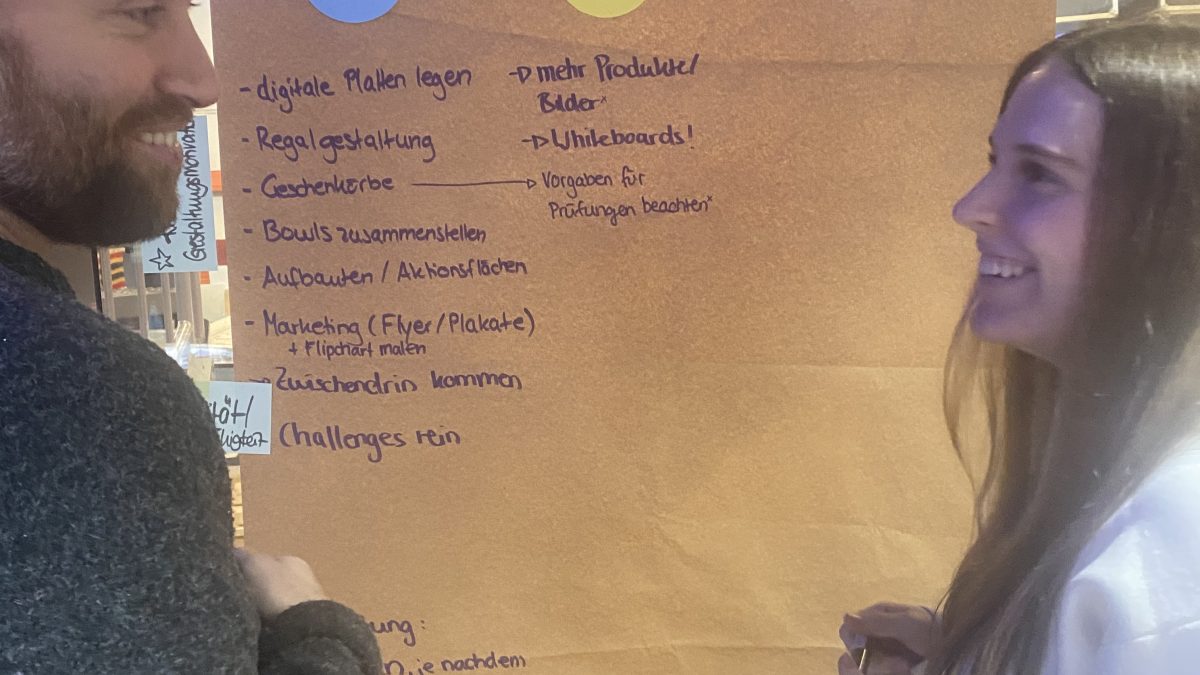 - digitale Platten legen → mehr Produkte/
Bilder*
- Regalgestaltung → Whiteboards!
- Geschenkörbe → Vorgaben für
Prüfungen beachten*
- Bowls zusammenstellen
- Aufbauten / Aktionsflächen
- Marketing (Flyer/Plakate)
+ Flipchart malen
→ Zwischendrin kommen
Challenges rein
ung:
je nachdem
☆
Gestaltungsmotivation
tät/